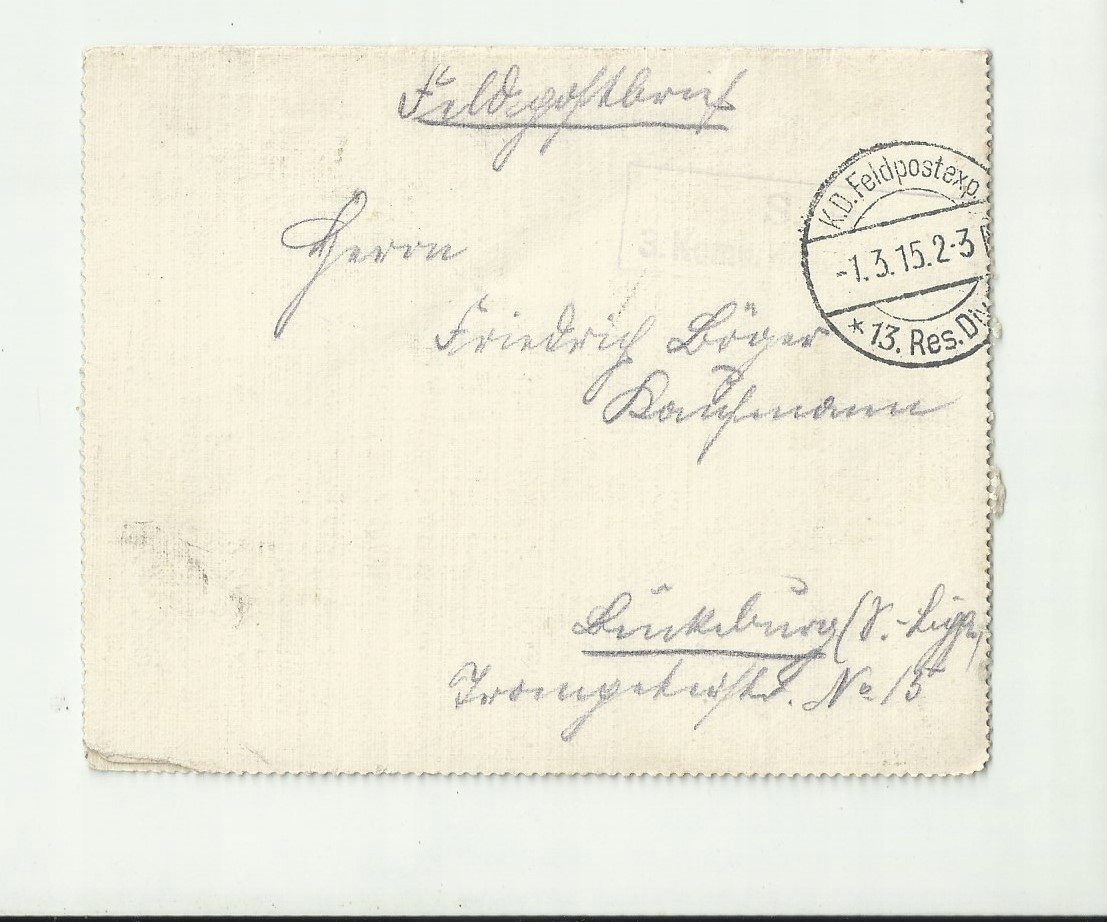 Feldpostbrief
K.D. Feldpostexp.
-1.3.15.2-3
* 13. Res. Div.
Herrn
Friedrich Böger
Kaufmann
Bückeburg (S.-Lippe)
Trompeterstr. No 15